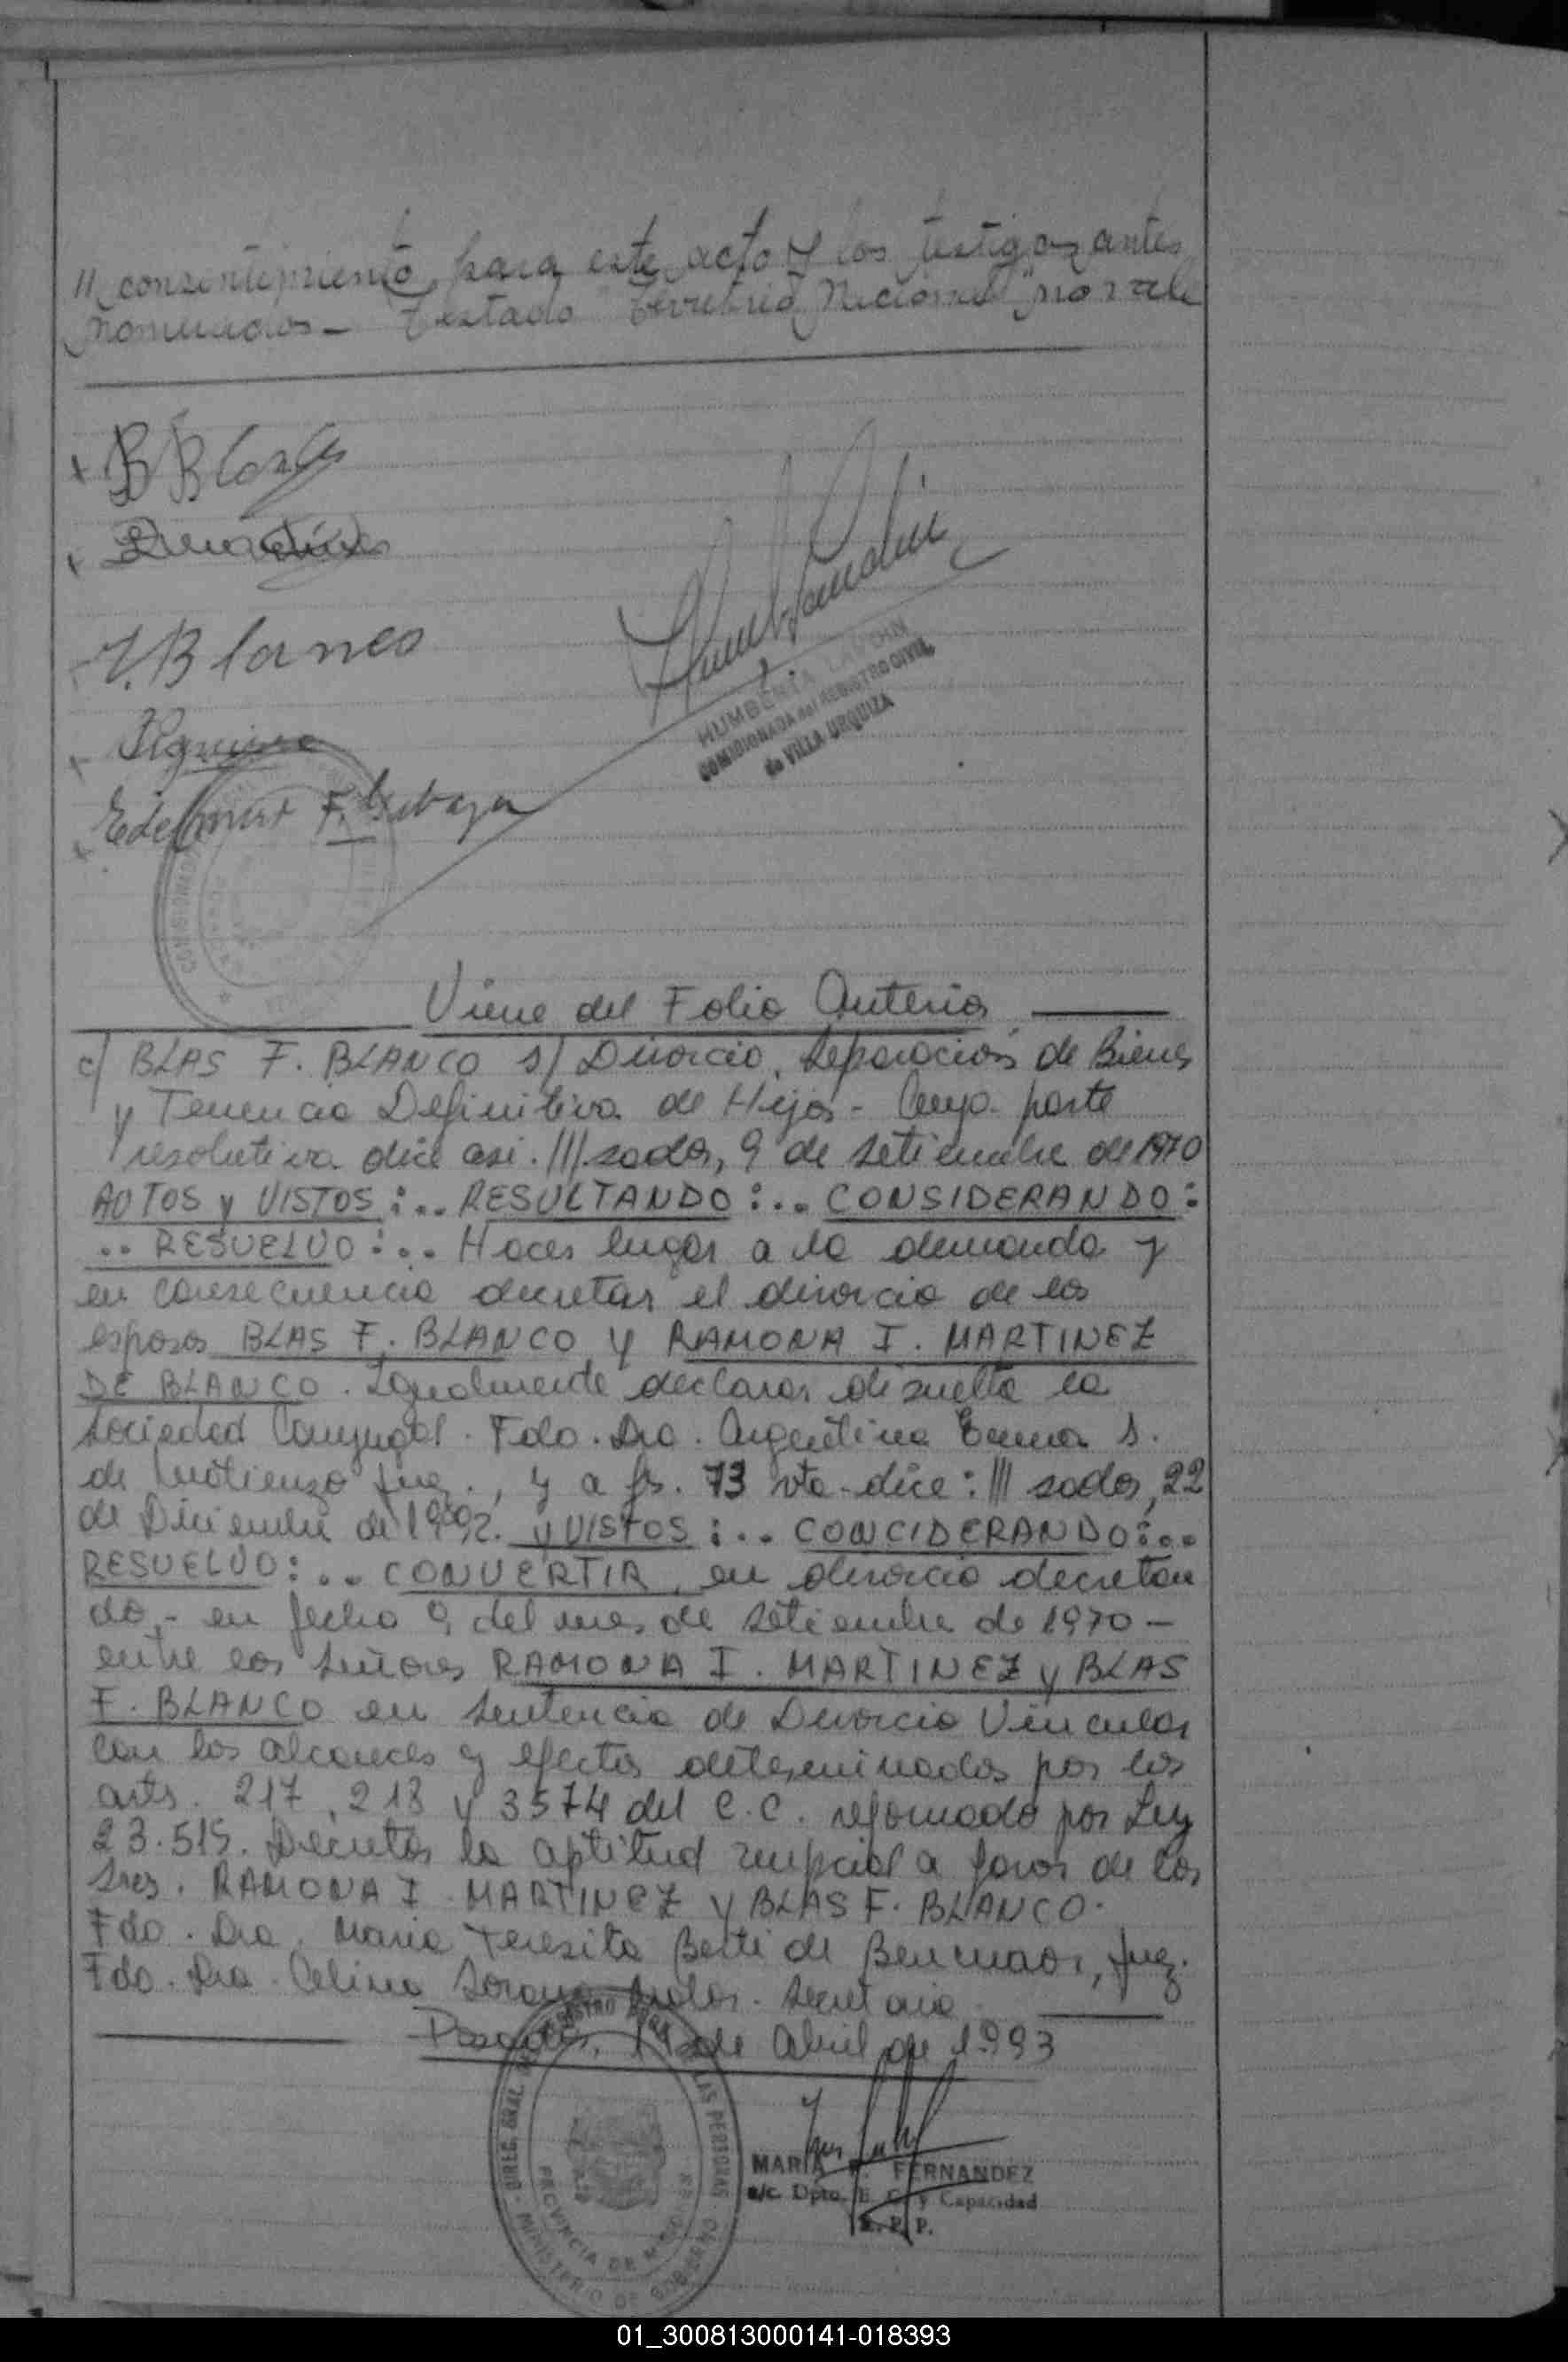 // consentimiento para este acto y los testigos antes
nominados - Testado "Territorio Nacional" no vale
B Blanco
V. Blanco
Edelmar F.
HUMBERTA
COMISIONADA del REGISTRO CIVIL
de VILLA URQUIZA
Viene del Folio Anterior
c/ BLAS F. BLANCO s/ Divorcio, Separación de Bienes
y Tenencia Definitiva de Hijos - Cuya parte
resolutiva dice asi. ///sadas, 9 de Setiembre de 1970
AUTOS y VISTOS:.. RESULTANDO:.. CONSIDERANDO:
.. RESUELVO:.. Hacer lugar a la demanda y
en consecuencia decretar el divorcio de los
esposos BLAS F. BLANCO y RAMONA I. MARTINEZ
DE BLANCO. Igualmente declarar disuelta la
Sociedad Conyugal. Fdo. Dra. Argentina Emma S.
de Juez., y a fs. 73 vta. dice: /// sadas, 22
de Diciembre de 1992. y VISTOS:.. CONCIDERANDO:..
RESUELVO:.. CONVERTIR, en divorcio decretan
do - en fecha 9 del mes de Setiembre de 1970 -
entre los Señores RAMONA I. MARTINEZ y BLAS
F. BLANCO en Sentencia de Divorcio Vincular
con los alcances y efectos determinados por los
arts. 217, 218 y 3574 del C.C. reformado por Ley
23.515. Decretar la aptitud nupcial a favor de los
Sres. RAMONA I. MARTINEZ y BLAS F. BLANCO.
Fdo. Dra. Maria Teresita Berti de Juez.
Fdo. Dra. Celina Secretaria
Posadas, 1 de Abril de 1993
DIREC. GRAL. REGISTRO LAS PERSONAS
PROVINCIA DE MISIONES
MINISTERIO DE GOBIERNO
MARIA FERNANDEZ
a/c. Dpto. E. C. y Capacidad
R. P. P.
01_300813000141-018393